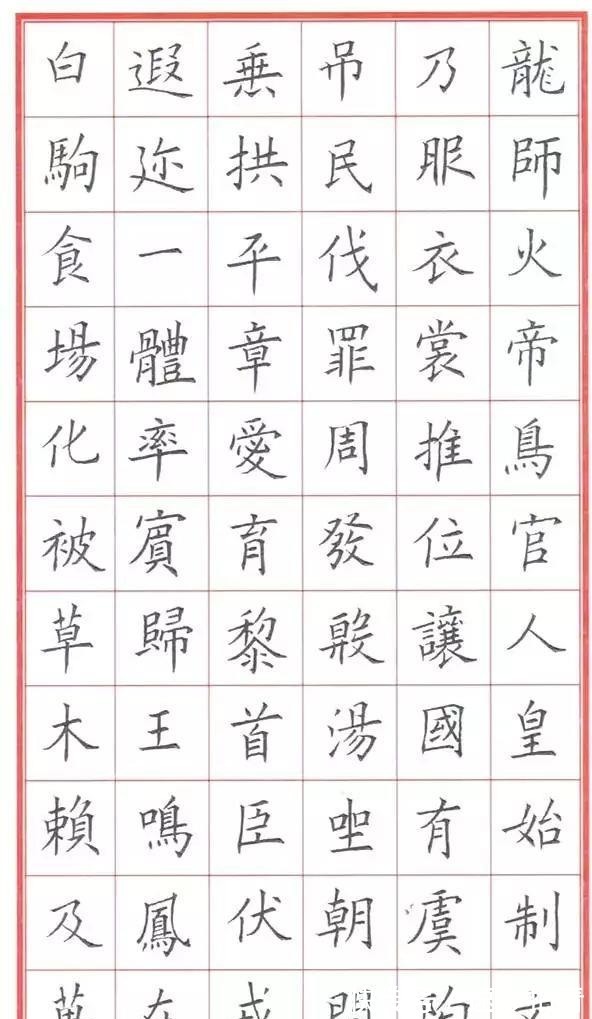 龍師火帝鳥官人皇始制
乃服衣裳推位讓國有虞
吊民伐罪周發殷湯坐朝
垂拱平章愛育黎首臣伏
遐迩一體率賓歸王鳴鳳
白駒食場化被草木賴及